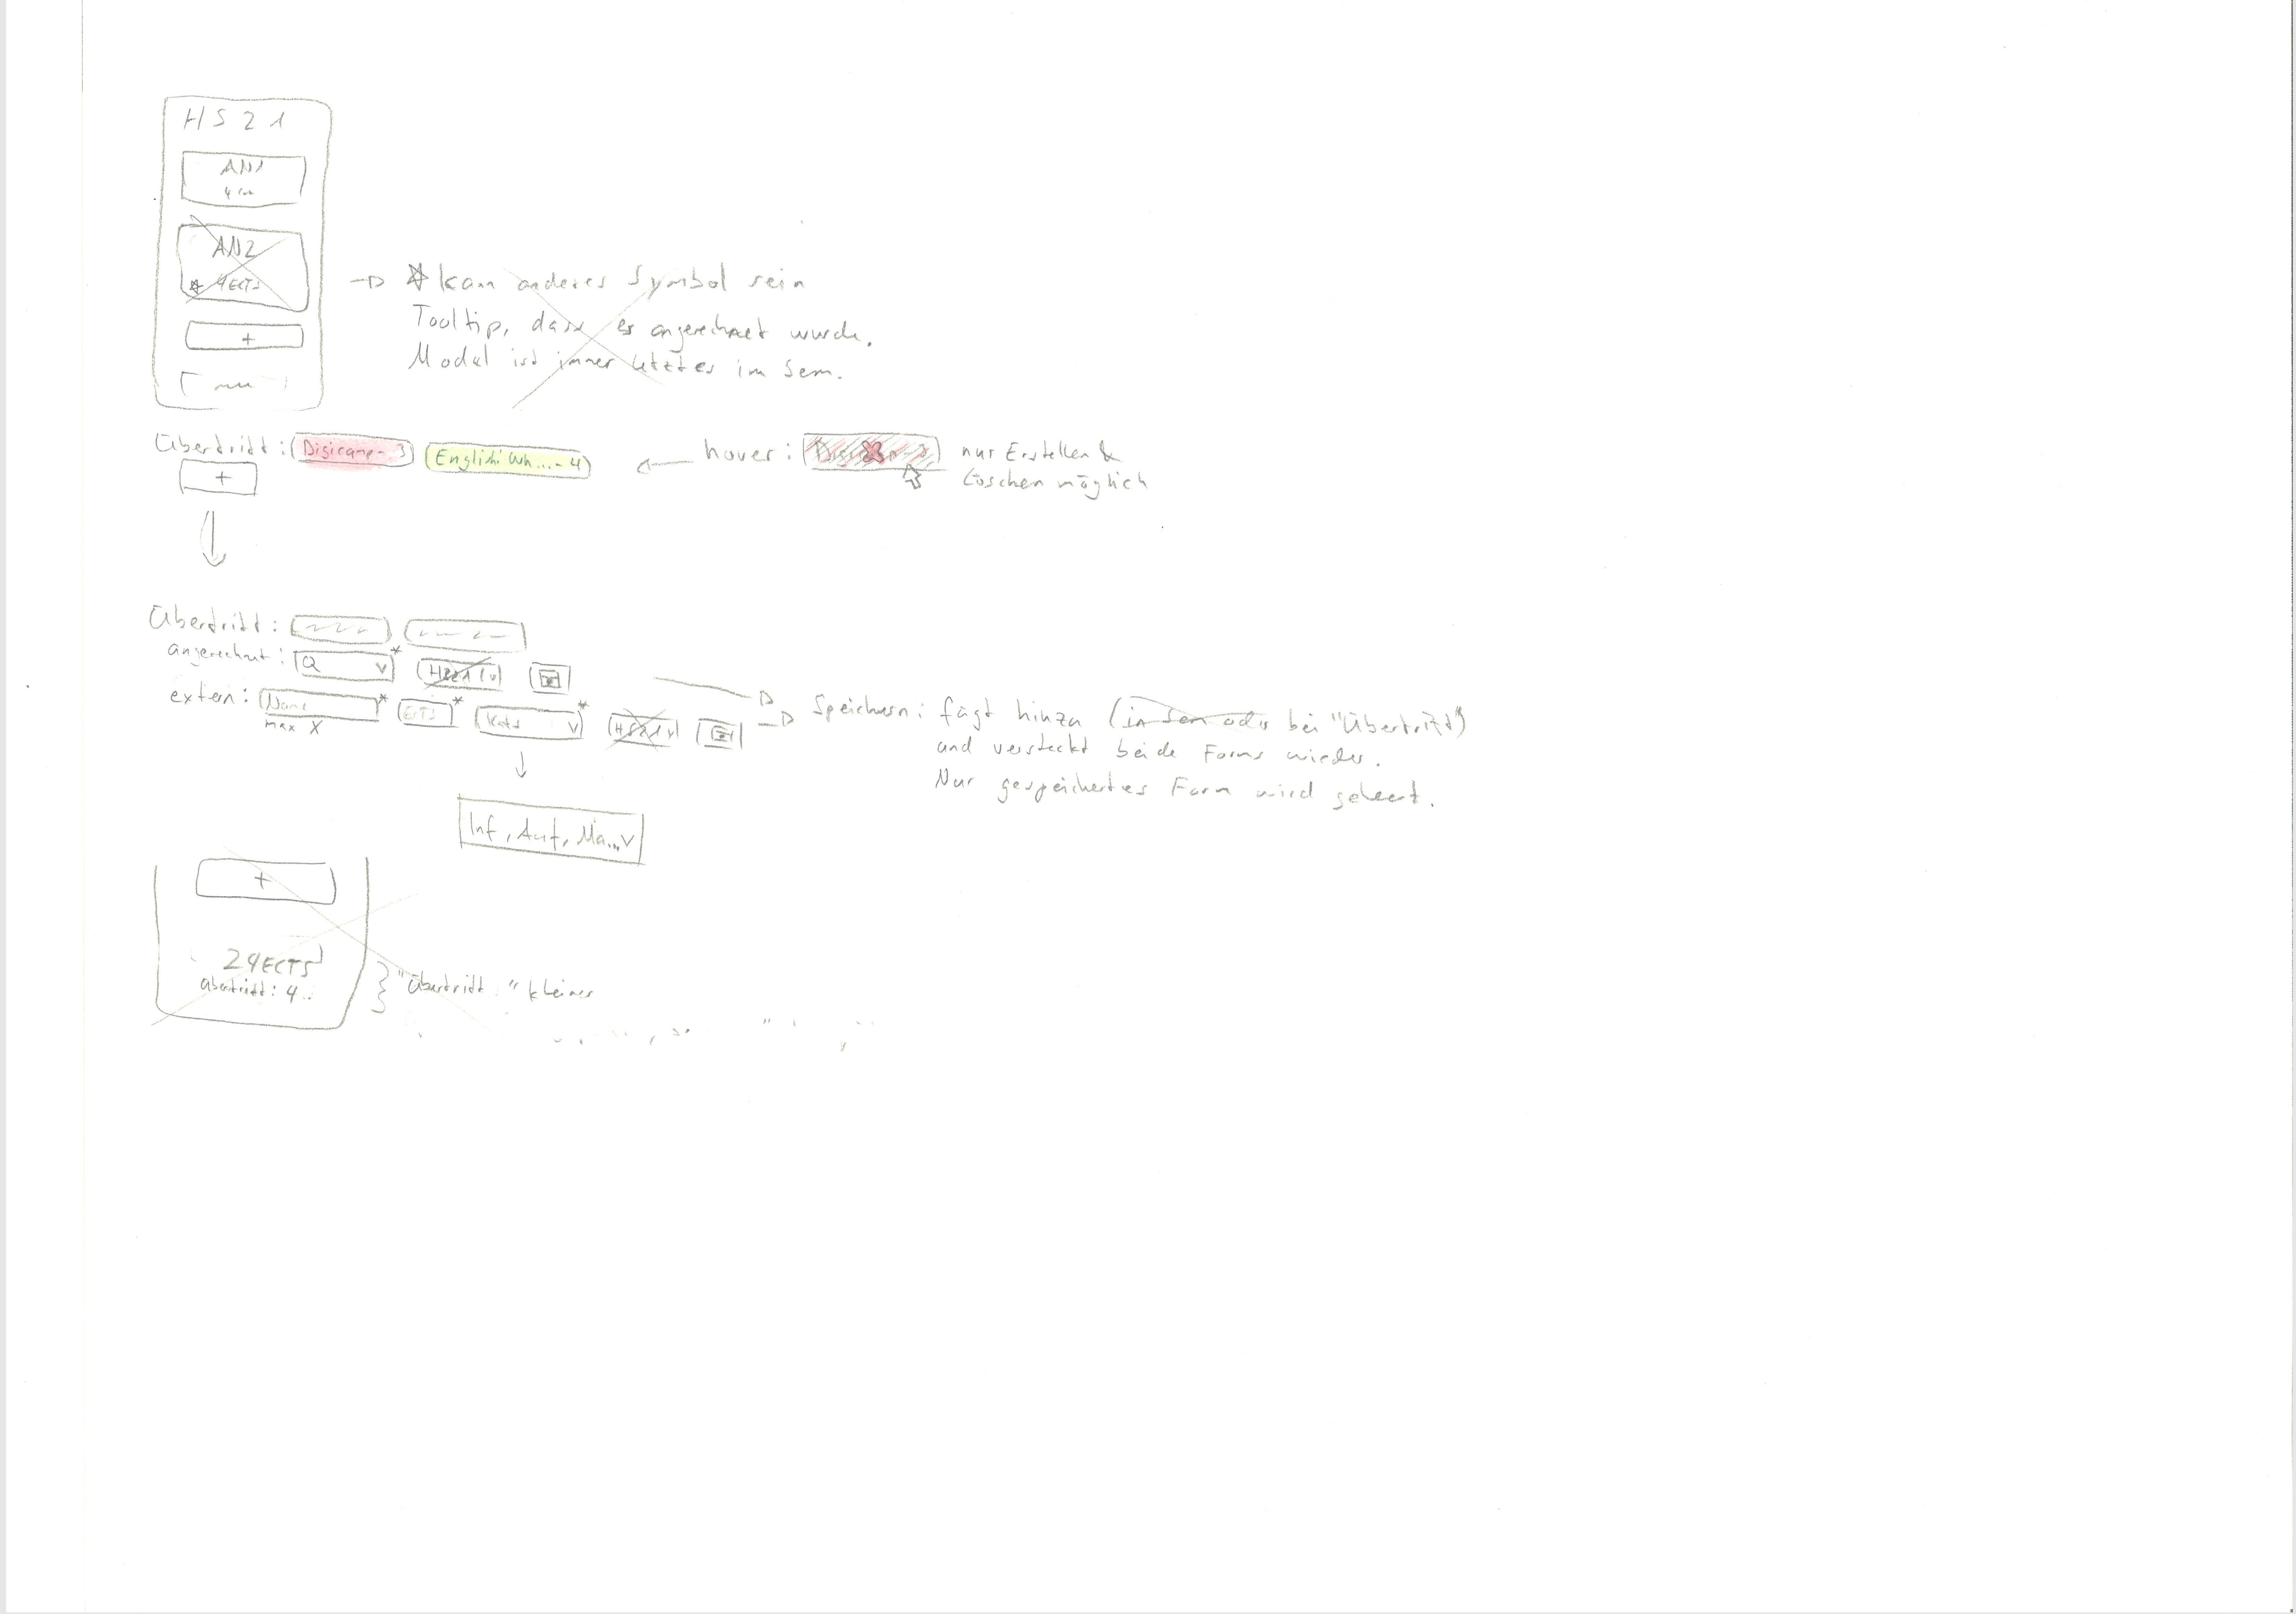 HS21
AN1
AN2
* 4ECTS
+
→ * kann anderes Symbol sein
Tooltip, dass es angerechnet wurde.
Modul ist immer letztes im Sem.
Übertritt: Digicamp - 3 English: Wh...- 4
+
← hover: nur Erstellen &
Löschen möglich
Übertritt:
angerechnet: Q v * HS21 v
extern: Name * ECTS * Kats v * HS21 v
max X
→ Speichern: fügt hinzu (in Sem oder bei "Übertritt")
und versteckt beide Forms wieder.
Nur gespeichertes Form wird geleert.
Inf, Auf, Ma... v
+
24ECTS
Übertritt: 4
} "Übertritt:" kleiner